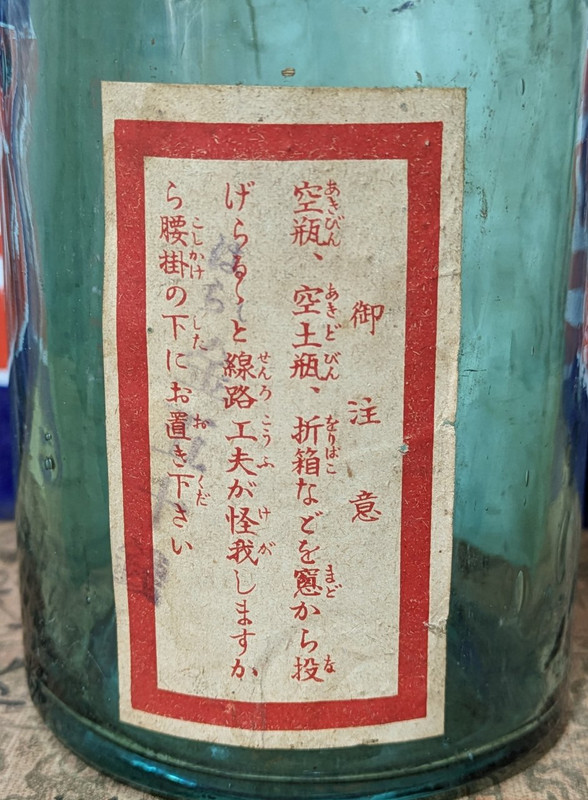 御注意
空瓶、空土瓶、折箱などを窓から投
げらるゝと線路工夫が怪我しますか
ら腰掛の下にお置き下さい